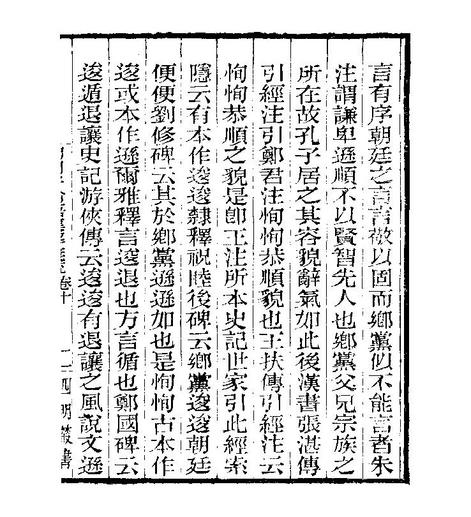 言有序朝廷之言言敬以固而鄉黨似不能言者朱
注謂謙卑遜順不以賢智先人也鄉黨父兄宗族之
所在故孔子居之其容貌辭氣如此後漢書張湛傳
引經注引鄭君注恂恂恭順貌也王扶傳引經注云
恂恂恭順之貌是卽王注所本史記世家引此經索
隱云有本作逡逡隸釋祝睦後碑云鄉黨逡逡朝廷
便便劉修碑云其於鄉黨遜遜如也是恂恂古本作
逡或本作遜爾雅釋言逡退也方言循也鄭國碑云
逡遁退讓史記游俠傳云逡逡有退讓之風說文遜
卷十
四明叢書